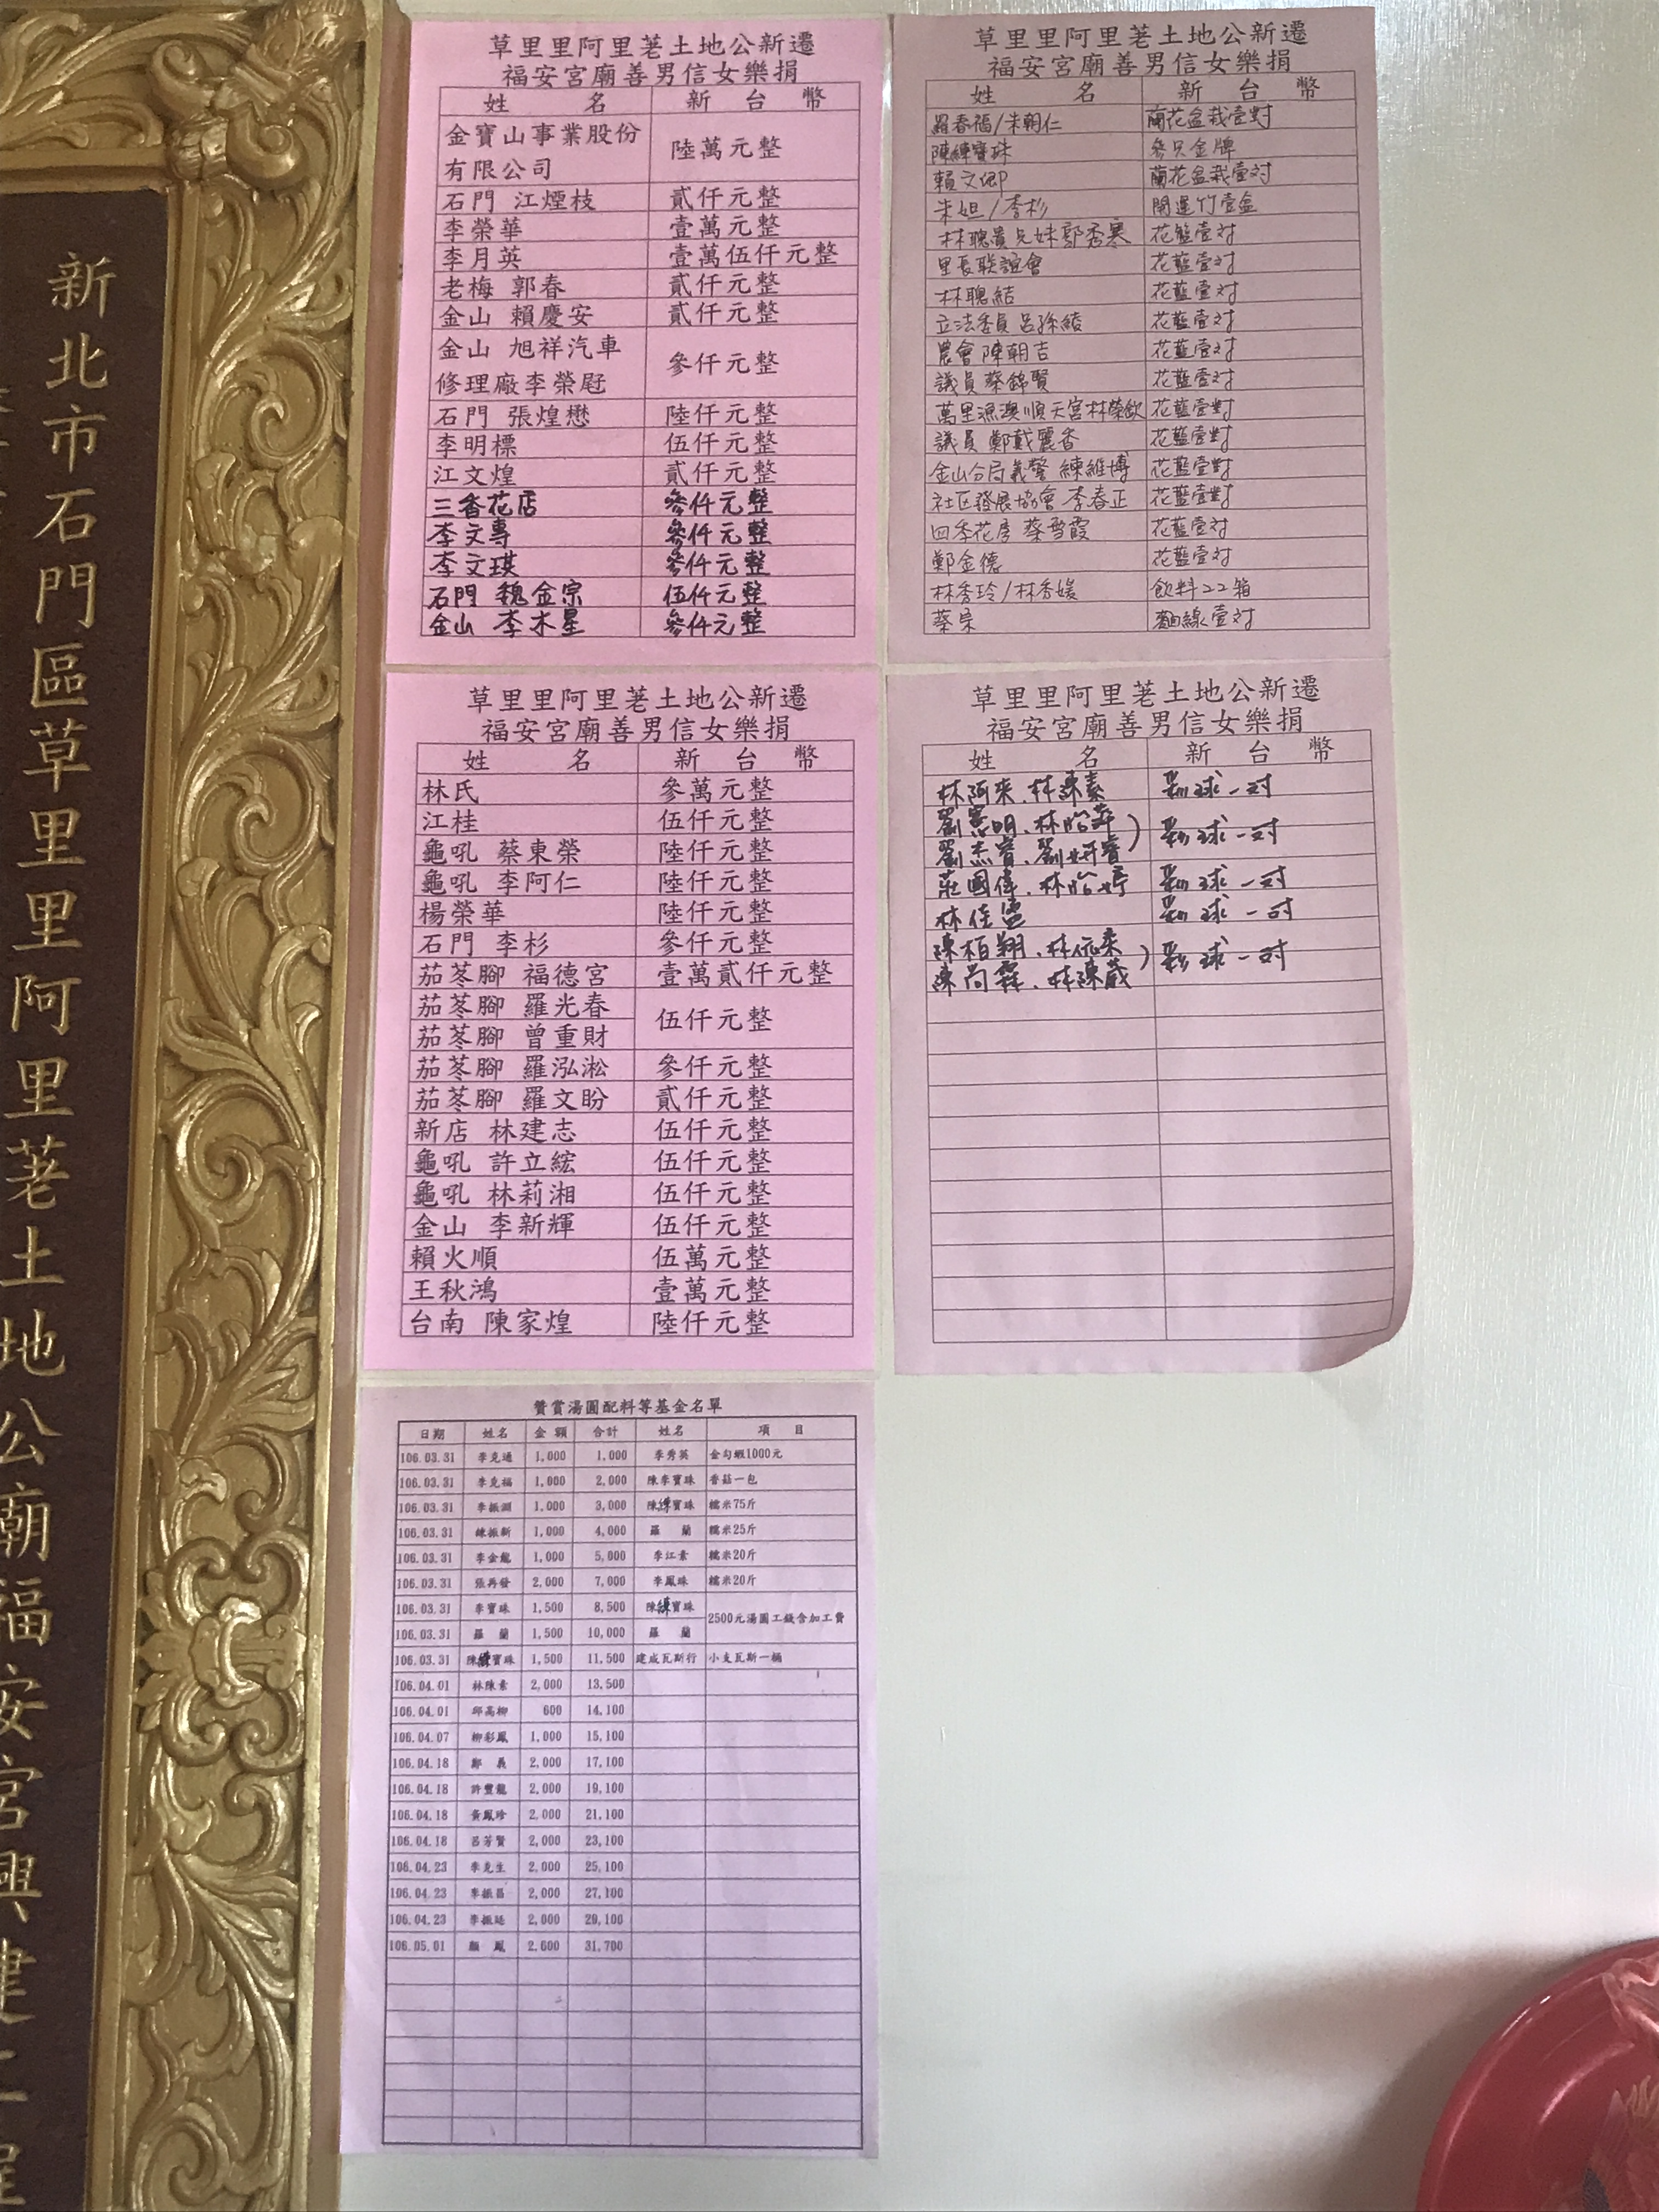 新北市石門區草里里阿里荖土地公廟福安宮興建工程
草里里阿里荖土地公新遷
福安宮廟善男信女樂捐
姓名 新台幣
金寶山事業股份
有限公司 陸萬元整
石門 江煙枝 貳仟元整
李榮華 壹萬元整
李月英 壹萬伍仟元整
老梅 郭春 貳仟元整
金山 賴慶安 貳仟元整
金山 旭祥汽車
修理廠李榮 參仟元整
石門 張煌懋 陸仟元整
李明標 伍仟元整
江文煌 貳仟元整
三香花店 參仟元整
李文專 參仟元整
李文琪 參仟元整
石門 魏金宗 伍仟元整
金山 李木星 參仟元整
草里里阿里荖土地公新遷
福安宮廟善男信女樂捐
姓名 新台幣
羅春福/朱朝仁 蘭花盆栽壹對
陳練寶珠 參只金牌
賴文卿 蘭花盆栽壹对
朱妲/李杉 開運竹壹盆
林聰貴兄妹郭秀寒 花籃壹对
里長联誼會 花藍壹对
林聰結 花藍壹对
立法委員 呂孫綾 花藍壹对
農會 陳朝吉 花藍壹对
議員 蔡錦賢 花藍壹对
萬里漁澳順天宮林榮欽 花藍壹對
議員 鄭戴麗香 花藍壹對
金山分局義警 練維博 花藍壹對
社区發展協會 李春正 花藍壹對
四季花房 蔡雪霞 花藍壹对
鄭金德 花藍壹对
林秀玲/林香媛 飲料22箱
蔡宗 麵線壹对
草里里阿里荖土地公新遷
福安宮廟善男信女樂捐
姓名 新台幣
林氏 參萬元整
江桂 伍仟元整
龜吼 蔡東榮 陸仟元整
龜吼 李阿仁 陸仟元整
楊榮華 陸仟元整
石門 李杉 參仟元整
茄苳腳 福德宮 壹萬貳仟元整
茄苳腳 羅光春
茄苳腳 曾重財 伍仟元整
茄苳腳 羅泓淞 參仟元整
茄苳腳 羅文盼 貳仟元整
新店 林建志 伍仟元整
龜吼 許立紘 伍仟元整
龜吼 林莉湘 伍仟元整
金山 李新輝 伍仟元整
賴火順 伍萬元整
王秋鴻 壹萬元整
台南 陳家煌 陸仟元整
草里里阿里荖土地公新遷
福安宮廟善男信女樂捐
姓名 新台幣
林阿來、林陳素 彩球一对
劉憲明、林怡萍
劉杰睿、劉妍睿 彩球一对
莊國偉、林怡婷 彩球一对
林佳 彩球一对
陳柏翔、林依柔
陳尚霖、林陳葳 彩球一对
贊賞湯圓配料等基金名單
日期 姓名 金額 合計 姓名 項目
106.03.31 李克通 1,000 1,000 李秀英 金勾蝦1000元
106.03.31 李克福 1,000 2,000 陳李寶珠 香菇一包
106.03.31 李振淵 1,000 3,000 陳練寶珠 糯米75斤
106.03.31 練振新 1,000 4,000 羅蘭 糯米25斤
106.03.31 李金龍 1,000 5,000 李江素 糯米20斤
106.03.31 張再發 2,000 7,000 李鳳珠 糯米20斤
106.03.31 李寶珠 1,500 8,500 陳練寶珠 2500元湯圓工錢含加工費
106.03.31 羅蘭 1,500 10,000 羅蘭
106.03.31 陳練寶珠 1,500 11,500 建成瓦斯行 小支瓦斯一桶
106.04.01 林陳素 2,000 13,500
106.04.01 邱高柳 600 14,100
106.04.07 柳彩鳳 1,000 15,100
106.04.18 鄭義 2,000 17,100
106.04.18 許豐龍 2,000 19,100
106.04.18 黃鳳珍 2,000 21,100
106.04.18 呂芳賢 2,000 23,100
106.04.23 李克生 2,000 25,100
106.04.23 李振昌 2,000 27,100
106.04.23 李振廷 2,000 29,100
106.05.01 顏鳳 2,600 31,700